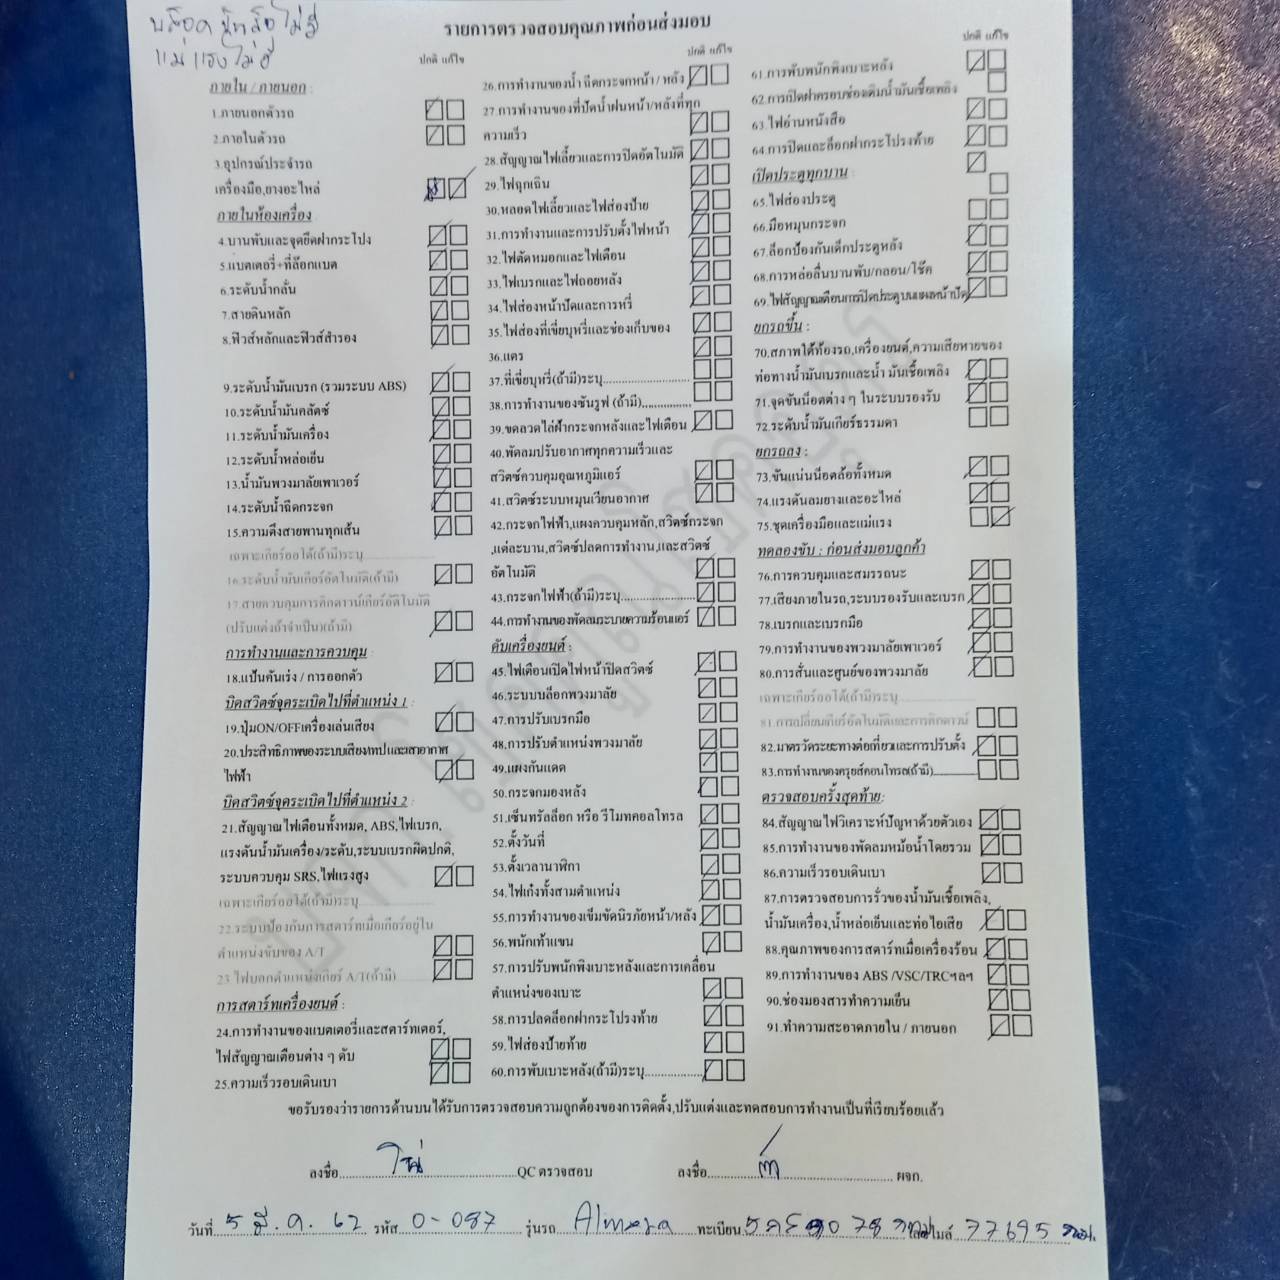 แม่แรงไม่มี
รายการตรวจสอบคุณภาพก่อนส่งมอบ
ปกติ แก้ไข
ภายใน / ภายนอก :
1.ภายนอกตัวรถ
2.ภายในตัวรถ
3.อุปกรณ์ประจำรถ
เครื่องมือ,ยางอะไหล่
ภายในห้องเครื่อง :
4.บานพับและจุดยึดฝากระโปง
5.แบตเตอรี่+ที่ล๊อกแบต
6.ระดับน้ำกลั่น
7.สายดินหลัก
8.ฟิวส์หลักและฟิวส์สำรอง
9.ระดับน้ำมันเบรก (รวมระบบ ABS)
10.ระดับน้ำมันคลัตซ์
11.ระดับน้ำมันเครื่อง
12.ระดับน้ำหล่อเย็น
13.น้ำมันพวงมาลัยเพาเวอร์
14.ระดับน้ำฉีดกระจก
15.ความตึงสายพานทุกเส้น
เฉพาะเกียร์ออโต้(ถ้ามี)ระบุ
16.ระดับน้ำมันเกียร์อัตโนมัติ(ถ้ามี)
17.สายควบคุมการคิกดาวน์เกียร์อัตโนมัติ
(ปรับแต่งถ้าจำเป็น)(ถ้ามี)
การทำงานและการควบคุม :
18.แป้นคันเร่ง / การออกตัว
บิดสวิตซ์จุดระเบิดไปที่ตำแหน่ง 1 :
19.ปุ่มON/OFFเครื่องเล่นเสียง
20.ประสิทธิภาพของระบบเสียง/เทปและเสาอากาศ
ไฟฟ้า
บิดสวิตซ์จุดระเบิดไปที่ตำแหน่ง 2 :
21.สัญญาณไฟเตือนทั้งหมด, ABS,ไฟเบรก,
แรงดันน้ำมันเครื่อง/ระดับ,ระบบเบรกผิดปกติ,
ระบบควบคุม SRS,ไฟแรงสูง
เฉพาะเกียร์ออโต้(ถ้ามี)ระบุ
22.ระบบป้องกันการสตาร์ทเมื่อเกียร์อยู่ใน
ตำแหน่งขับของ A/T
23.ไฟบอกตำแหน่งเกียร์ A/T(ถ้ามี)
การสตาร์ทเครื่องยนต์ :
24.การทำงานของแบตเตอรี่และสตาร์ทเตอร์,
ไฟสัญญาณเตือนต่าง ๆ ดับ
25.ความเร็วรอบเดินเบา
ปกติ แก้ไข
26.การทำงานของน้ำ ฉีดกระจกหน้า / หลัง
27.การทำงานของที่ปัดน้ำฝนหน้า/หลังที่ทุก
ความเร็ว
28.สัญญาณไฟเลี้ยวและการปิดอัตโนมัติ
29.ไฟฉุกเฉิน
30.หลอดไฟเลี้ยวและไฟส่องป้าย
31.การทำงานและการปรับตั้งไฟหน้า
32.ไฟตัดหมอกและไฟเตือน
33.ไฟเบรกและไฟถอยหลัง
34.ไฟส่องหน้าปัดและการหรี่
35.ไฟส่องที่เขี่ยบุหรี่และช่องเก็บของ
36.แตร
37.ที่เขี่ยบุหรี่(ถ้ามี)ระบุ
38.การทำงานของซันรูฟ (ถ้ามี)
39.ขดลวดไล่ฝ้ากระจกหลังและไฟเตือน
40.พัดลมปรับอากาศทุกความเร็วและ
สวิตซ์ควบคุมอุณหภูมิแอร์
41.สวิตซ์ระบบหมุนเวียนอากาศ
42.กระจกไฟฟ้า,แผงควบคุมหลัก,สวิตซ์กระจก
,แต่ละบาน,สวิตซ์ปลดการทำงาน,และสวิตซ์
อัตโนมัติ
43.กระจกไฟฟ้า(ถ้ามี)ระบุ
44.การทำงานของพัดลมระบายความร้อนแอร์
ดับเครื่องยนต์ :
45.ไฟเตือนเปิดไฟหน้าปิดสวิตซ์
46.ระบบบล็อกพวงมาลัย
47.การปรับเบรกมือ
48.การปรับตำแหน่งพวงมาลัย
49.แผงกันแดด
50.กระจกมองหลัง
51.เซ็นทรัลล็อก หรือ รีโมทคอลโทรล
52.ตั้งวันที่
53.ตั้งเวลานาฬิกา
54.ไฟเก๋งทั้งสามตำแหน่ง
55.การทำงานของเข็มขัดนิรภัยหน้า/หลัง
56.พนักเท้าแขน
57.การปรับพนักพิงเบาะหลังและการเคลื่อน
ตำแหน่งของเบาะ
58.การปลดล็อกฝากระโปรงท้าย
59.ไฟส่องป้ายท้าย
60.การพับเบาะหลัง(ถ้ามี)ระบุ
ปกติ แก้ไข
61.การพับพนักพิงเบาะหลัง
62.การเปิดฝาครอบช่องเติมน้ำมันเชื้อเพลิง
63.ไฟอ่านหนังสือ
64.การปิดและล็อกฝากระโปรงท้าย
เปิดประตูทุกบาน :
65.ไฟส่องประตู
66.มือหมุนกระจก
67.ล็อกป้องกันเด็กประตูหลัง
68.การหล่อลื่นบานพับ/กลอน/โช๊ค
69.ไฟสัญญาณเตือนการปิดประตูบนแผงหน้าปัด
ยกรถขึ้น :
70.สภาพใต้ท้องรถ,เครื่องยนต์,ความเสียหายของ
ท่อทางน้ำมันเบรกและน้ำ มันเชื้อเพลิง
71.จุดขันน็อตต่าง ๆ ในระบบรองรับ
72.ระดับน้ำมันเกียร์ธรรมดา
ยกรถลง :
73.ขันแน่นน็อตล้อทั้งหมด
74.แรงดันลมยางและอะไหล่
75.ชุดเครื่องมือและแม่แรง
ทดลองขับ : ก่อนส่งมอบลูกค้า
76.การควบคุมและสมรรถนะ
77.เสียงภายในรถ,ระบบรองรับและเบรก
78.เบรกและเบรกมือ
79.การทำงานของพวงมาลัยเพาเวอร์
80.การสั่นและศูนย์ของพวงมาลัย
เฉพาะเกียร์ออโต้(ถ้ามี)ระบุ
81.การเปลี่ยนเกียร์อัตโนมัติและการคิกดาวน์
82.มาตรวัดระยะทางต่อเที่ยวและการปรับตั้ง
83.การทำงานของครุยส์คอนโทรล(ถ้ามี)
ตรวจสอบครั้งสุดท้าย:
84.สัญญาณไฟวิเคราะห์ปัญหาด้วยตัวเอง
85.การทำงานของพัดลมหม้อน้ำโดยรวม
86.ความเร็วรอบเดินเบา
87.การตรวจสอบการรั่วของน้ำมันเชื้อเพลิง,
น้ำมันเครื่อง,น้ำหล่อเย็นและท่อไอเสีย
88.คุณภาพของการสตาร์ทเมื่อเครื่องร้อน
89.การทำงานของ ABS /VSC/TRCฯลฯ
90.ช่องมองสารทำความเย็น
91.ทำความสะอาดภายใน / ภายนอก
ขอรับรองว่ารายการด้านบนได้รับการตรวจสอบความถูกต้องของการติดตั้ง,ปรับแต่งและทดสอบการทำงานเป็นที่เรียบร้อยแล้ว
ลงชื่อ QC ตรวจสอบ ลงชื่อ ผจก.
วันที่ 5 มี.ค. 62 รหัส 0-087 รุ่นรถ Almera ทะเบียน เลขไมล์ 77695 กม.